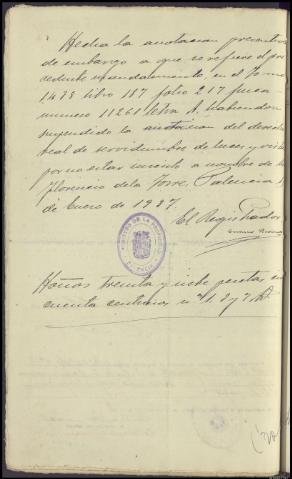 Hecha la anotacion preventiva
de embargo a que se refiere el pre
cedente mandamiento, en el tomo
1.433 libro 187 folio 217 finca
numero 11261 letra A. habiendose
suspendido la anotacion del derecho
real de servidumbre de luces y vistas
por no estar inscrito a nombre de
Florencio de la Torre. Palencia
de Enero de 1937.
El Registrador
REGISTRO DE LA PROPIEDAD
PALENCIA
Honos treinta y siete pesetas
cuenta centimos nº